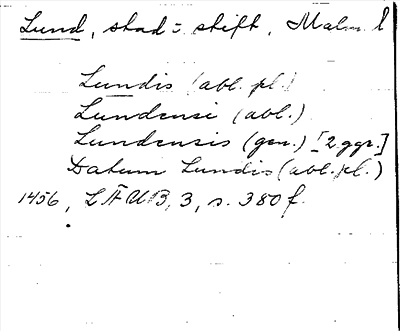 Lund, stad = stift, Malm. l
Lundis (abl. pl.)
Lundensi (abl.)
Lundensis (gen.) [2 ggr.]
Datum Lundis (abl. pl.)
1456, LÄUB, 3, s. 380 f.